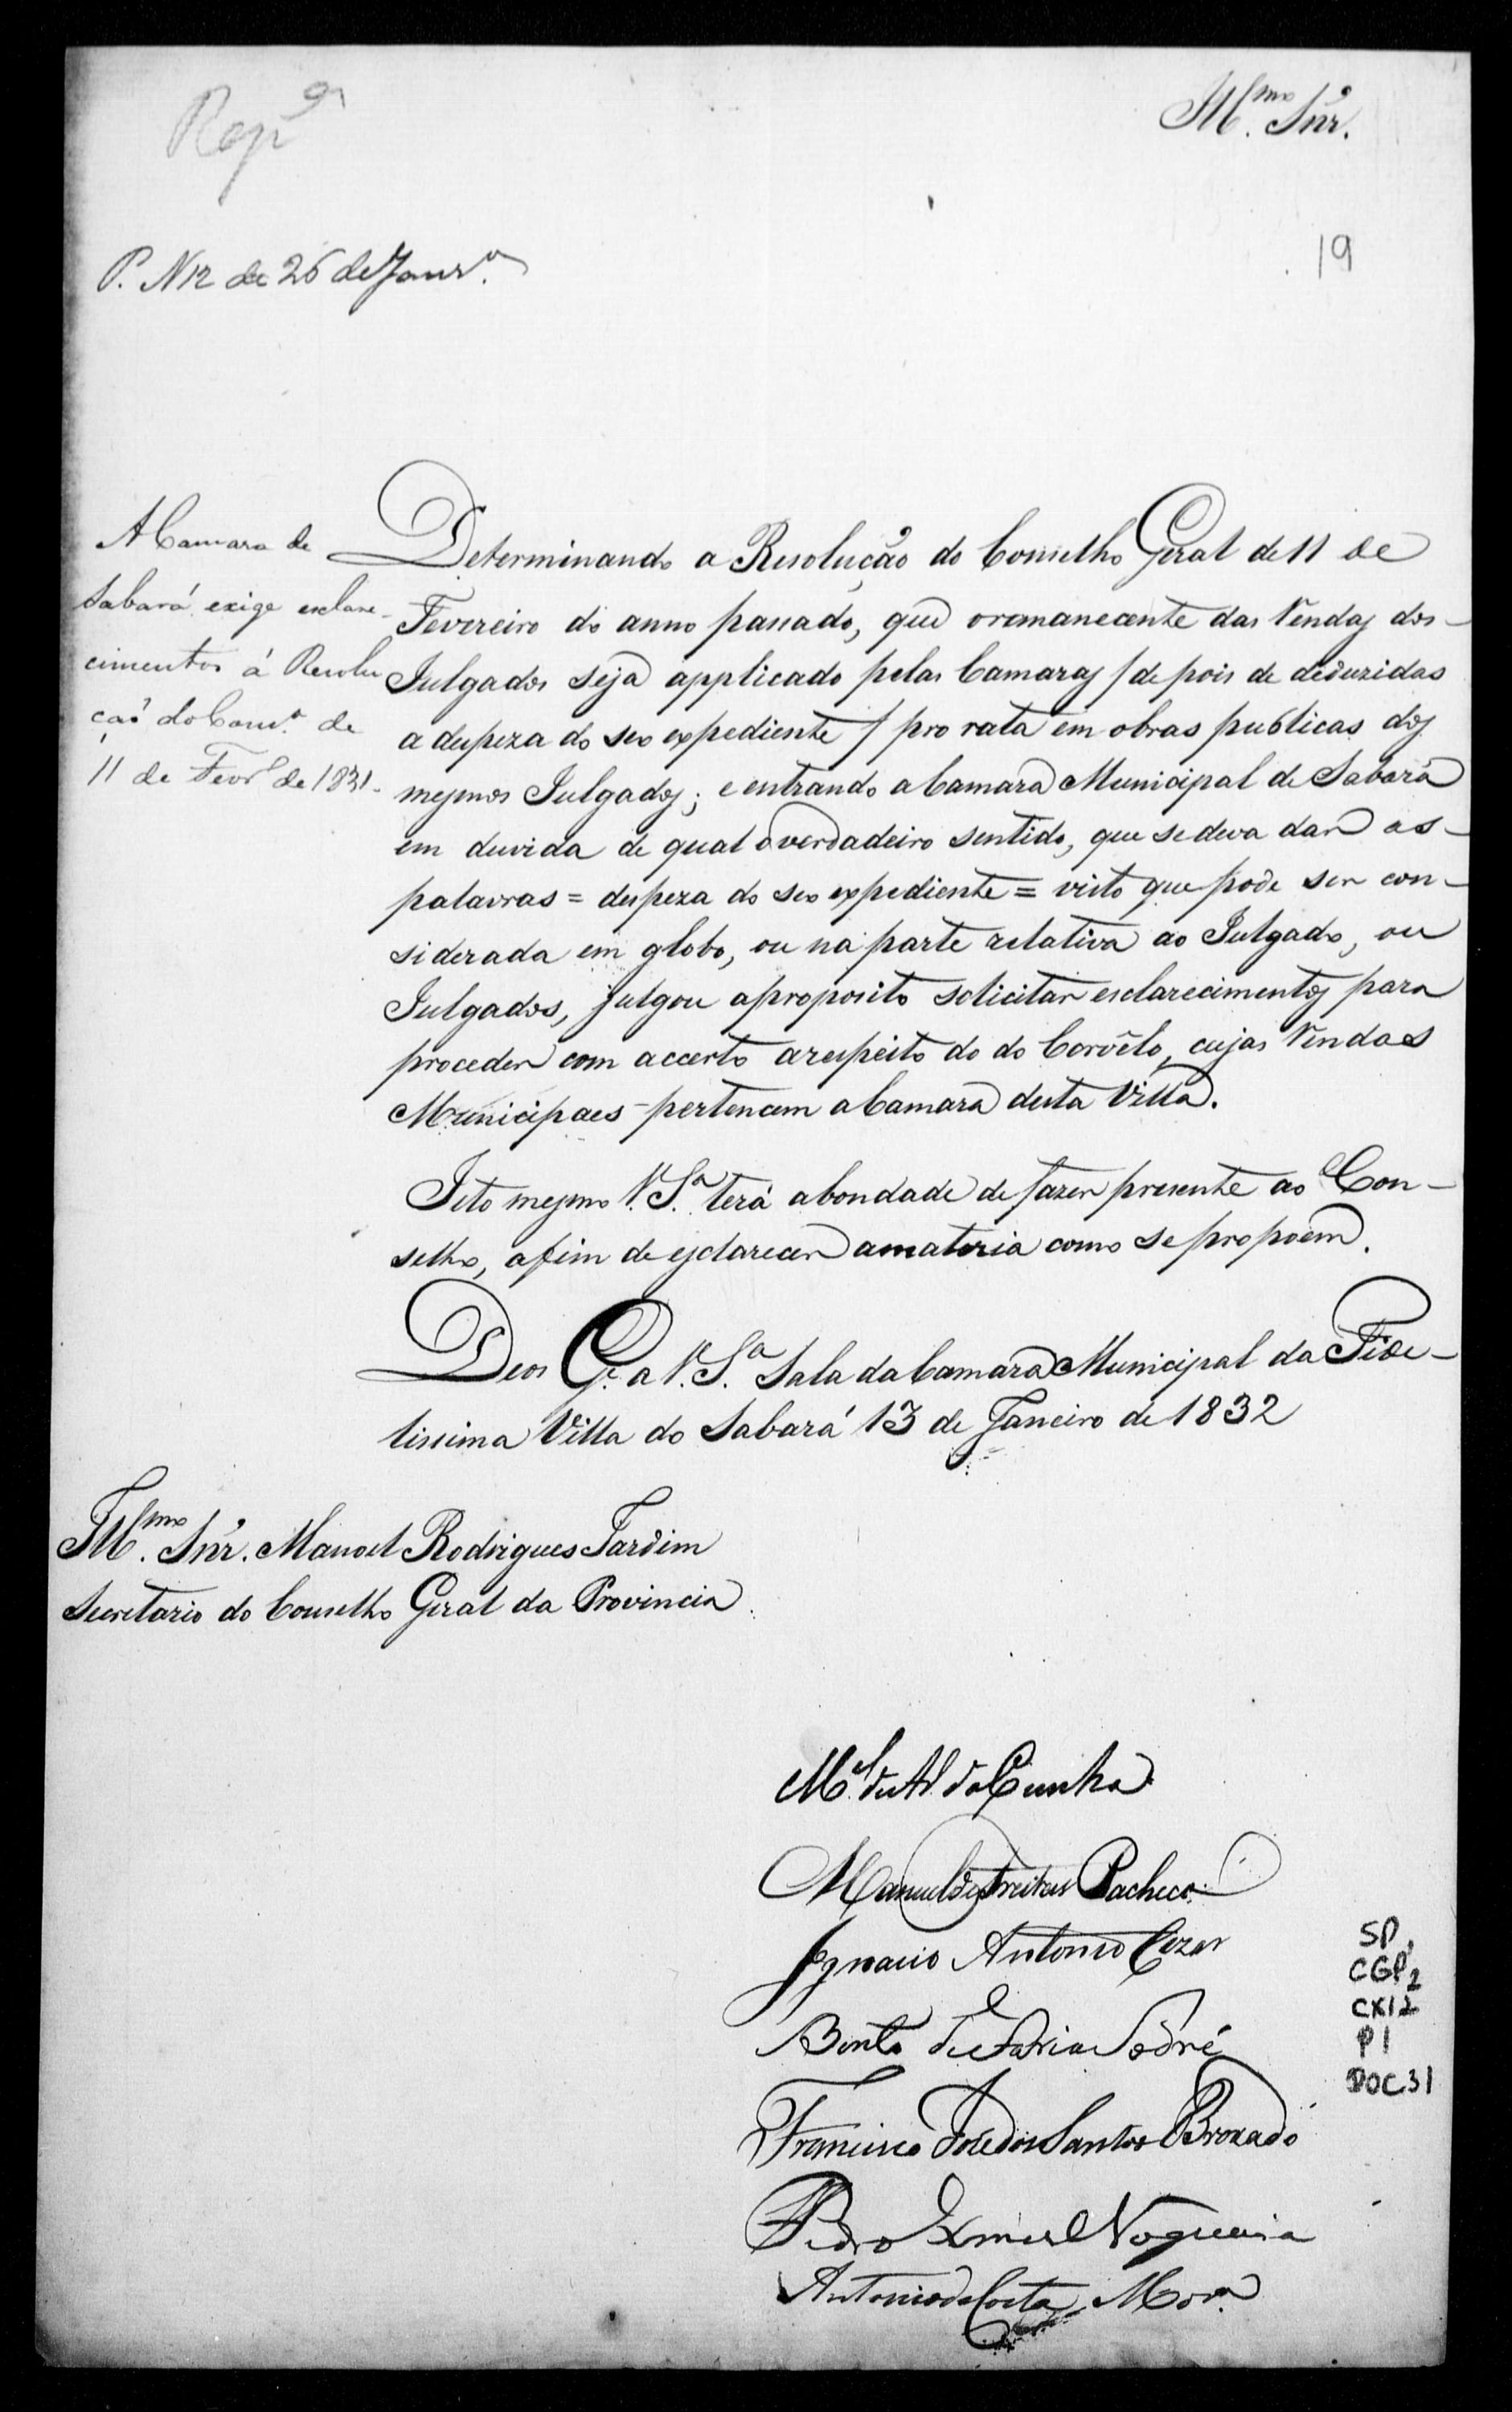 Rep.ª
Ill.mo Snr.
P. N 12 de 26 de Janr.º
19
A Camara de
Sabará exige esclare-
cimentos á Resolu
çaõ do Cons.º de
11 de Fevr.º de 1831-
Determinando a Resolução do Conselho Geral de 11 de
Fevereiro do anno passado, que o remanecente das Rendas dos-
Julgados seja applicado pelas Camaras / de pois de deduzidas
a despeza do seo expediente / pro rata em obras publicas dos
mesmos Julgados; e entrando a Camara Municipal de Sabará
em duvida de qual o verdadeiro sentido, que se deva dar as-
palavras = despeza do seo expediente = visto que pode ser con-
siderada em globo, ou na parte relativa ao Julgado, ou
Julgados, julgou aproposito solicitar esclarecimentos para
proceder com accerto arespeito do do Corvêlo, cujas Rendas
Municipaes pertencem a Camara desta Villa.
Isto mesmo V. S.ª terá abondade de fazer presente ao Con-
selho, afim de esclarecer amateria como se propoem.
Deos G.e a V. S.ª Sala da Camara Municipal da Fide-
lissima Villa do Sabará 13 de Janeiro de 1832
Ill.mo Snr. Manoel Rodrigues Jardim
Secretario do Conselho Geral da Provincia.
M.el da Cunha
Manuel de Freitas Pacheco
Ignacio Antonio Cezar
Bento de Faria Sodré
Francisco Jose dos Santos Broxado
Pedro Nogueira
Antonio da Costa Mor.ª
SP,
CGP2
CX12
P1
DOC31